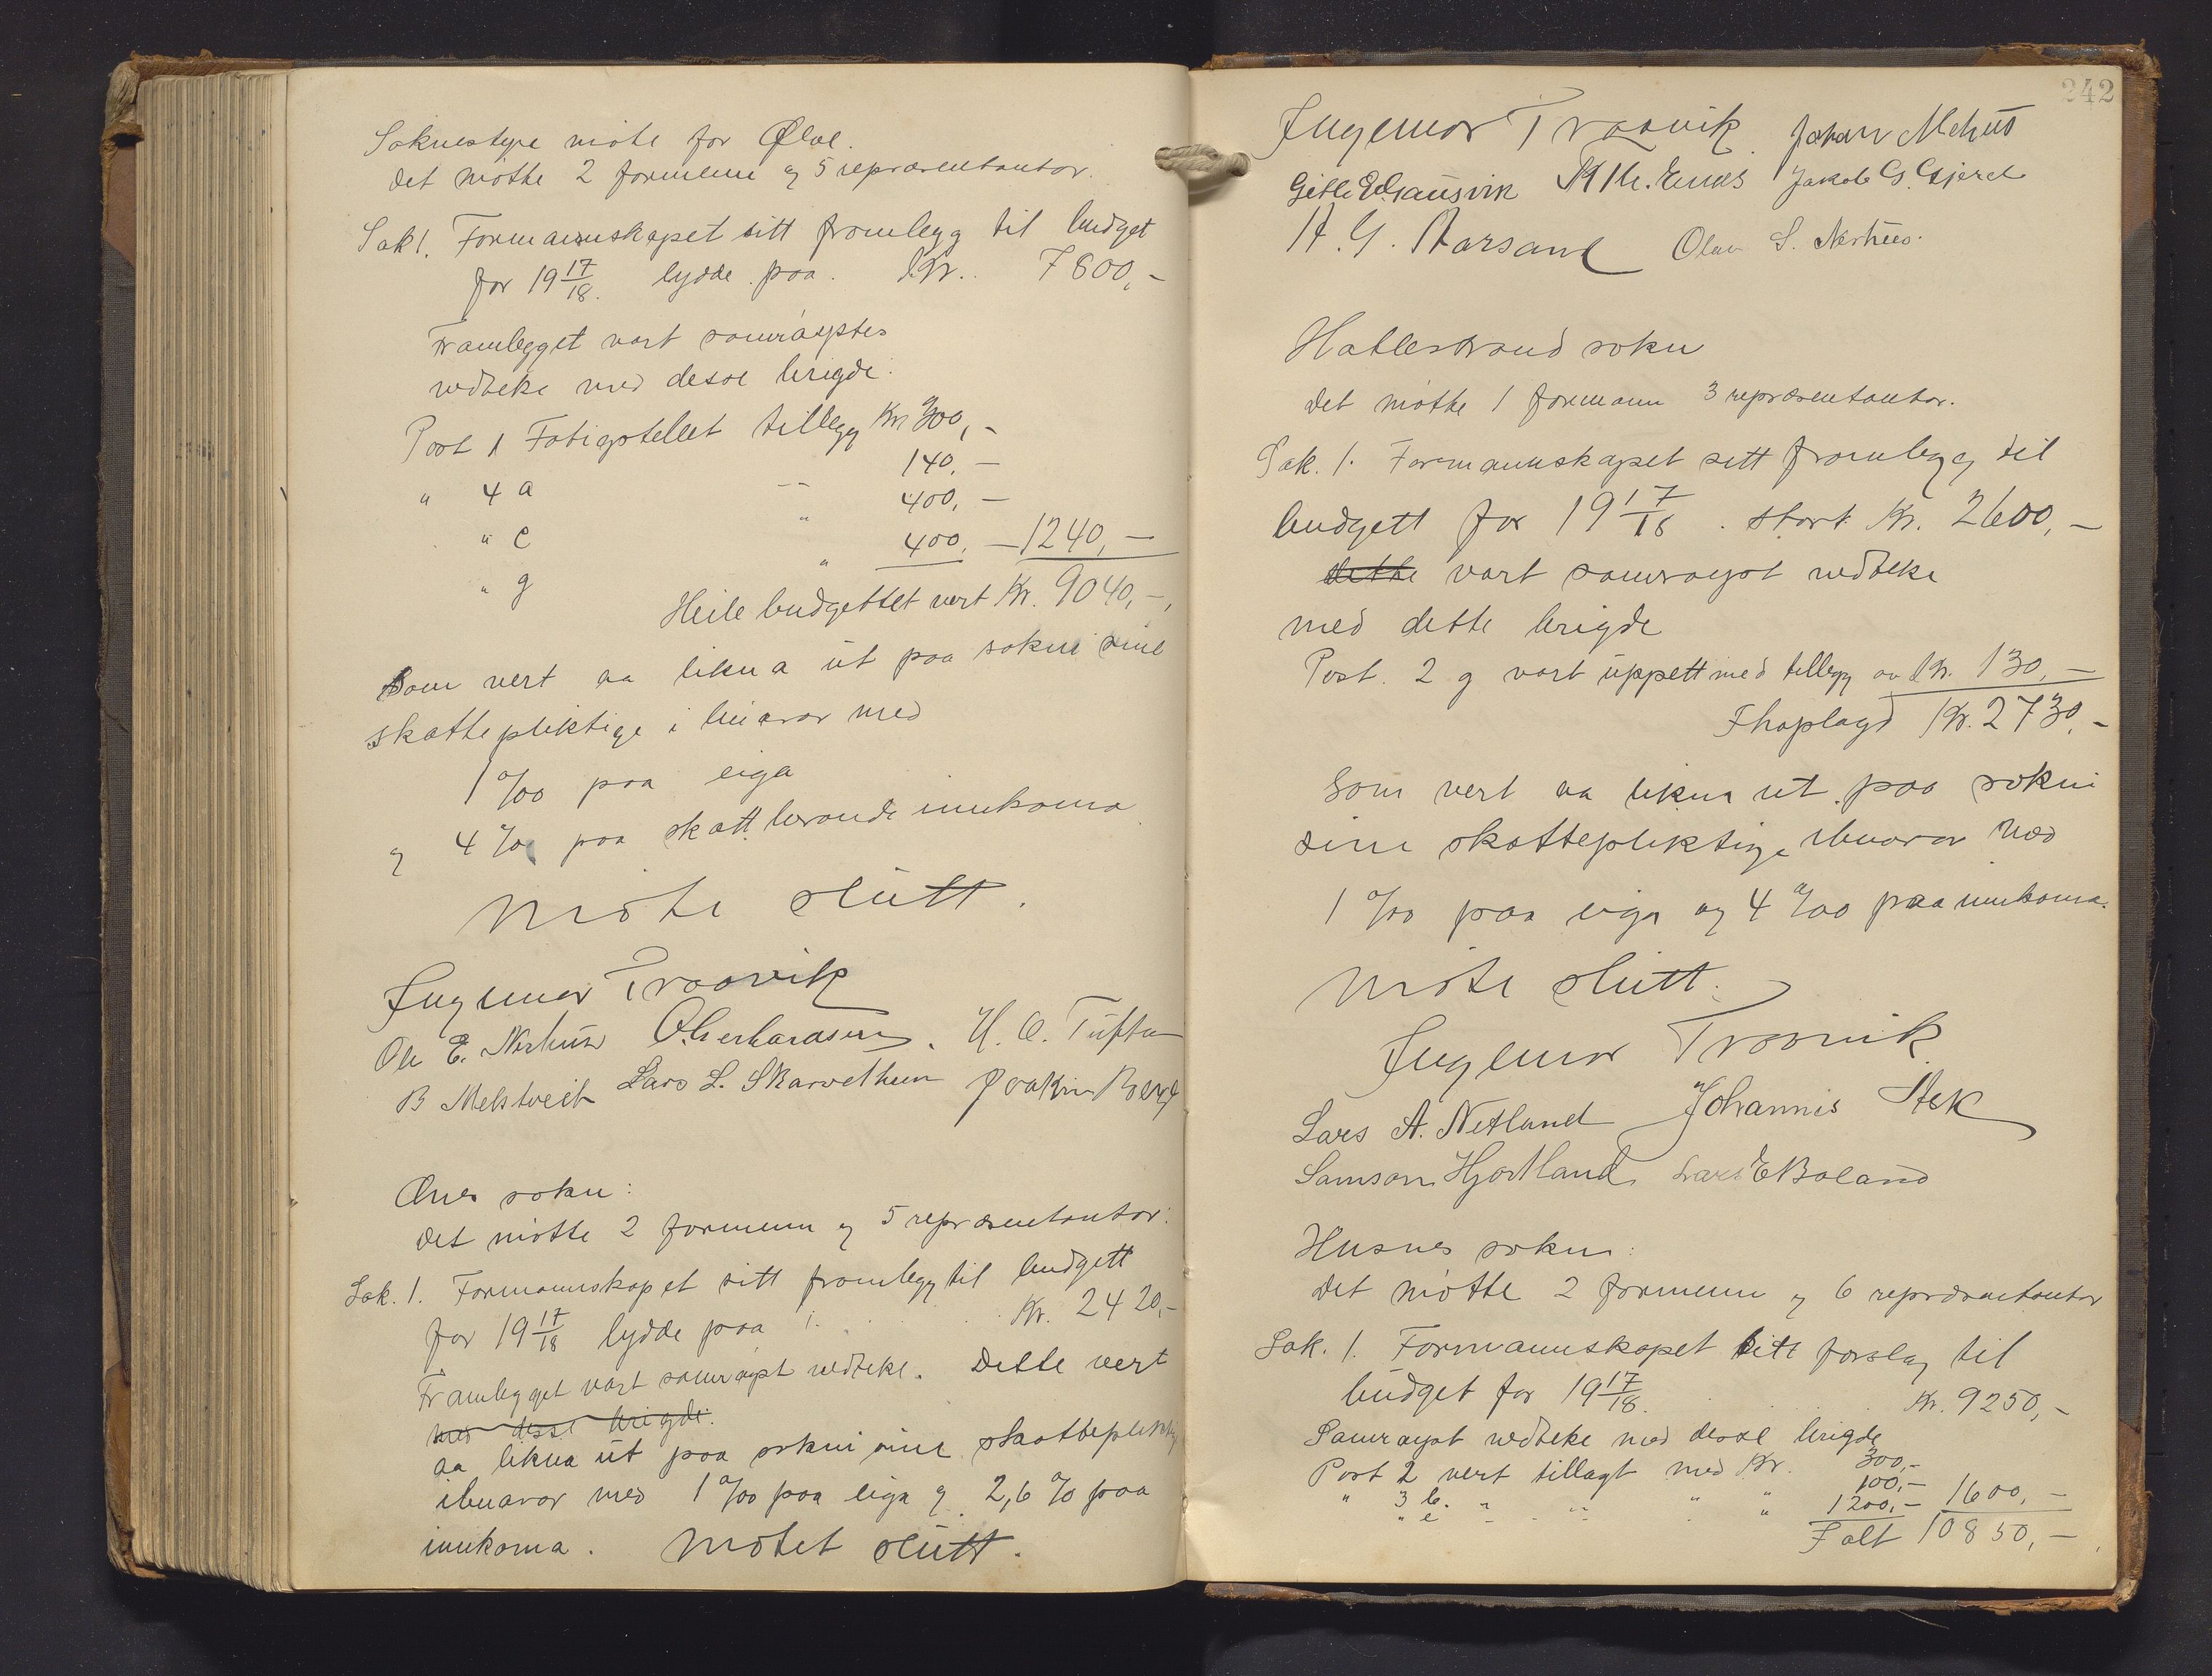 Soknestyre møte for Ølve.
Det møtte 2 formenn og 5 repræsentantar.
Sak 1. Formannskapet sitt framlegg til budget
for 19 17/18. lydde paa. Kr. 7800,-
Framlegget vart samrøystes
vedteke med desse brigde:
Post 1 Fatigstellet tillegg Kr 300,-
" 4 a -- 140,-
" c " 400,-
" g " 400,- 1240,-
Heile budgettet vert Kr. 9040,-,
Som vert aa likna ut paa sokni sine
skattepliktige ibuarar med
1 ‰ paa eiga
og 4 % paa skattberande innkoma
Møte slutt.
Ingemar Traavik
Ole E. Nerhus O. Gerhardsen. H. O. Tufta
B Melstveit Lars L. Skarvethun Joakim Berg
Ænes sokn:
Det møtte 2 formenn og 5 repræsentantar:
Sak. 1. Formannskapet sitt framlegg til budgett
for 19 17/18 lydde paa Kr. 2420,-
Framlegget vart samrøyst vedteke. Dette vert
med desse brigde:
aa likna ut paa sokni sine skattepliktig
ibuarar med 1 ‰ paa eiga og 2,6 % paa
innkoma. Møtet slutt.
242
Ingemar Traavik. Johan Mehus
Gitle E. Gausvik Jakob G. Gjerde
H. G. Aarsand Olav S. Nerhus.
Hatlestrand sokn
Det møtte 1 formann 3 repræsentantar.
Sak. 1. Formannskapet sitt framlegg til
budgett for 19 17/18. stort Kr. 2600,-
dette vart samrøyst vedteke
med dette brigde
Post. 2 g vart uppsett med tillegg av Kr. 130,-
Ihoplagd Kr. 2730,-
Som vert aa likna ut paa sokni
sine skattepliktige ibuarar med
1 ‰ paa eiga og 4 % paa innkoma.
Møte slutt.
Ingemar Traavik
Lars A. Netland Johannis Aek
Samson Hjortland Lars E Boland
Husnes sokn:
Det møtte 2 formenn og 6 repræsentantar
Sak. 1. Formannskapet sitt forslag til
budget for 19 17/18. Kr. 9250,-
Samrøyst vedteke med desse brigde
Post 2 vert tillagt med Kr. 300,-
" 3 b. " " " " 100,-
" e " " " 1200,- 1600,-
I alt 10850,-